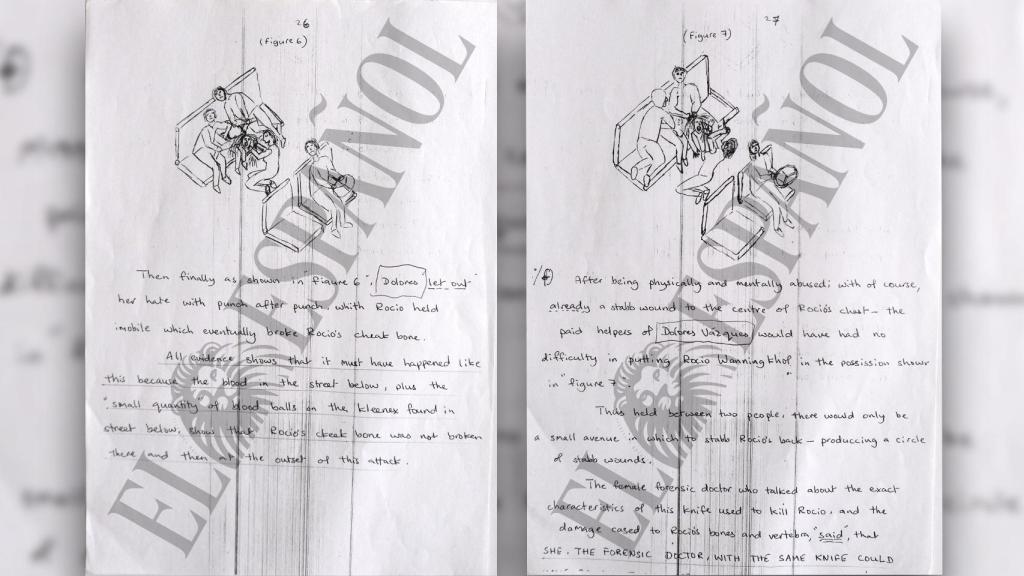 26
(Figure 6)
Then finally as shown in "figure 6", Dolores let out
her hate with punch after punch, whith Rocio held
imobile which eventually broke Rocio's cheat bone.
All evidence shows that it must have happened like
this because the blood in the street below, plus the
"small quantity of blood balls on the kleenex found in
street below, show that Rocio's cheat bone was not broken
there and then at the outset of this attack.
EL ESPAÑOL
27
(Figure 7)
After being physically and mentally abused; with of course,
already a stabb wound to the centre of Rocio's chest – the
paid helpers of Dolores Vázquez would have had no
difficulty in putting Rocio Wanningkhof in the possission shown
in "figure 7".
Thus held between two people, there would only be
a small avenue in which to stabb Rocio's back – producing a circle
of stabb wounds.
The female forensic doctor who talked about the exact
characteristics of this knife used to kill Rocio, and the
damage cased to Rocio's bones and vertebra, "said", that
SHE, THE FORENSIC DOCTOR, WITH THE SAME KNIFE COULD
EL ESPAÑOL